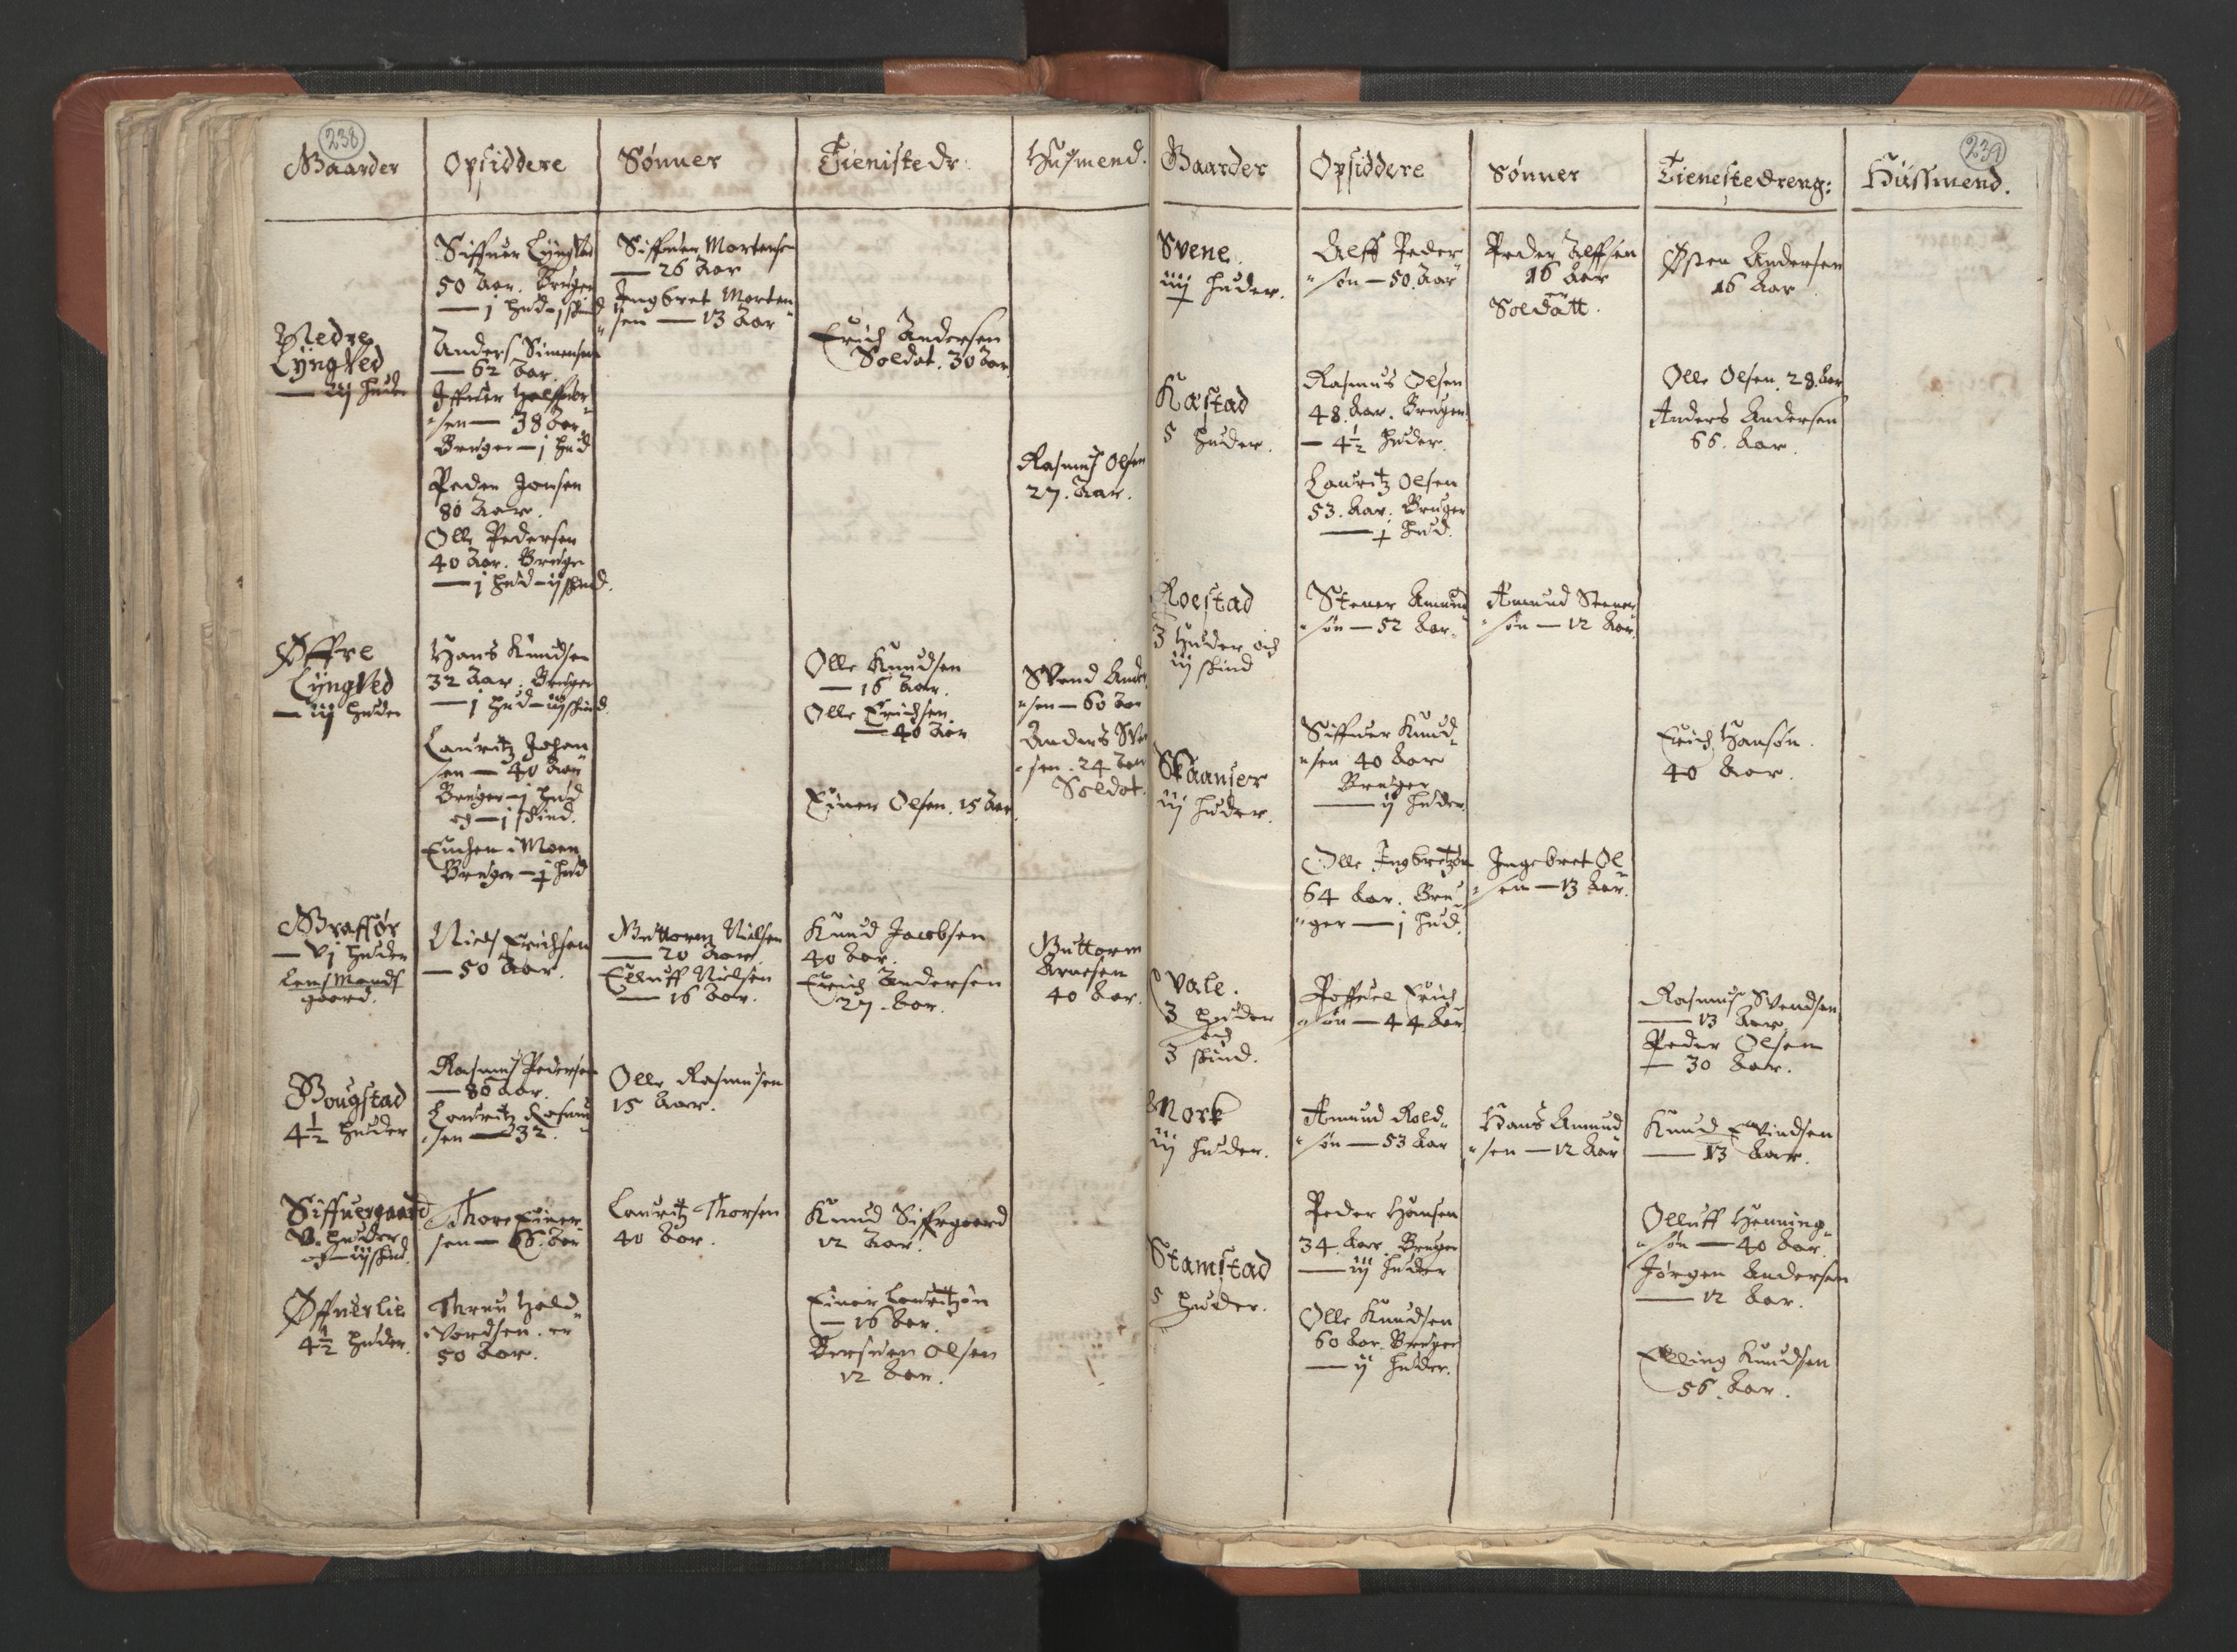 238
Gaarder
Opsiddere
Sønner
Tienistedr:
Husmend.
Nedre
Lyngved
— iiij huder
Siffuer Lyngved
50 Aar. Bruger
— j hud – j skind
Anders Simensen
— 62 Aar.
Iffuer Halffuor
sen — 38 Aar.
Bruger — j hud
Peder Jonsen
80 Aar.
Olle Pedersen
40 Aar. Bruger
— j hud – ij skind.
Siffuer Mortensen
— 26 Aar
Ingbret Morten
sen — 13 Aar
Erich Andersen
Soldat. 30 Aar.
Rasmus Olsen
27. Aar.
Øffre
Lyngved
— iiij huder
Hans Knudsen
32 Aar. Bruger
— j hud – iij skind.
Lauritz Johan
sen — 40 Aar
Bruger – j hud
og — j skind.
Enchen i Moen
Bruger – ½ hud
Olle Knudsen
— 16 Aar.
Olle Erichsen
— 40 Aar
Einer Olsen. 15 Aar.
Svend Ander
sen — 60 Aar
Anders Sven
sen. 24 Aar
Soldat.
Graffør
— vj huder
Lensmands
gaard.
Niels Erichsen
— 50 Aar.
Guttorm Nielsen
— 20 Aar.
Elluff Nielsen
— 16 Aar.
Knud Jacobsen
40 Aar.
Erich Andersen
27. Aar.
Guttorm
Arnesen
40 Aar.
Bougstad
4½ huder
Rasmus Pedersen
— 80 Aar.
Lauritz Rasmus
sen — 32.
Olle Rasmusen
15 Aar.
Siffuergaard
V. huder
og – iij skind.
Thore Einer
sen — 66. Aar
Lauritz Thorsen
40 Aar.
Knud Siffrgaard
12 Aar.
Øffuerlie
4½ huder.
Thrun Hald
vordsen. er
50 Aar.
Einer Lauritzøn
— 16 Aar.
Bersuen Olsen
12 Aar.
239
Gaarder
Opsiddere
Sønner
Tienestedreng:
Hussmend.
Svene.
iiij huder.
Alff Peder
søn — 50. Aar
Peder Alffsen
16 Aar
er
Soldatt.
Østen Andersen
16 Aar
Kastad
5 huder.
Rasmus Olsen
48 Aar. Bruger
— 4½ huder.
Lauritz Olsen
53. Aar. Bruger
— ½ hud.
Olle Olsen. 28. Aar
Anders Andersen
66. Aar.
Roestad
3 Huder och
iij skind
Stener Amund
søn — 52 Aar.
Amund Stener
søn — 12 Aar.
Skaanser
iij huder.
Siffuer Knud
sen 40 Aar
Bruger
— ij huder.
Olle Ingbretzøn
64 Aar. Bru
ger — j hud.
Ingebret Ol
sen — 13 Aar.
Erich Hansøn.
40 Aar.
Vale.
3 huder
och
3 skind.
Poffuel Erich
søn — 44 Aar
Rasmus Svendsen
— 13 Aar
Peder Olsen
— 30 Aar.
Mork
iij huder.
Amund Rold
søn — 53 Aar
Hans Amund
sen — 12 Aar
Knud Evindsen
— 13 Aar.
Stamstad
5 huder.
Peder Hansen
34. Aar. Bruger
— iij huder
Olle Knudsen
60 Aar. Bruger
— ij huder.
Olluff Henning
søn — 40 Aar.
Jørgen Andersen
— 12 Aar.
Elling Knudsen
56. Aar.